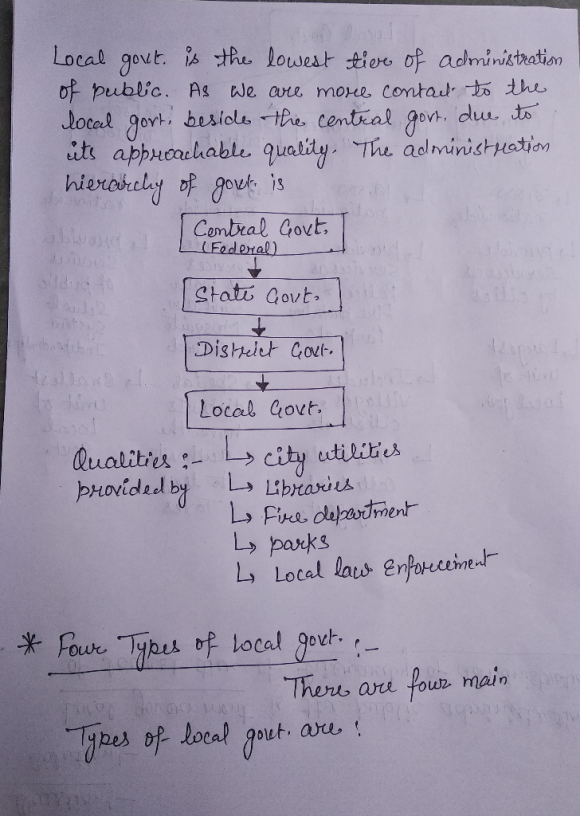 Local govt. is the lowest tier of administration
of public. As we are more contact to the
local govt. beside the central govt. due to
its approachable quality. The administration
hierarchy of govt. is
Central Govt.
(Federal)
State Govt.
District Govt.
Local Govt.
Qualities :- ↳ city utilities
provided by ↳ Libraries
↳ Fire department
↳ parks
↳ Local law Enforcement
* Four Types of Local govt. :-
There are four main
Types of local govt. are :